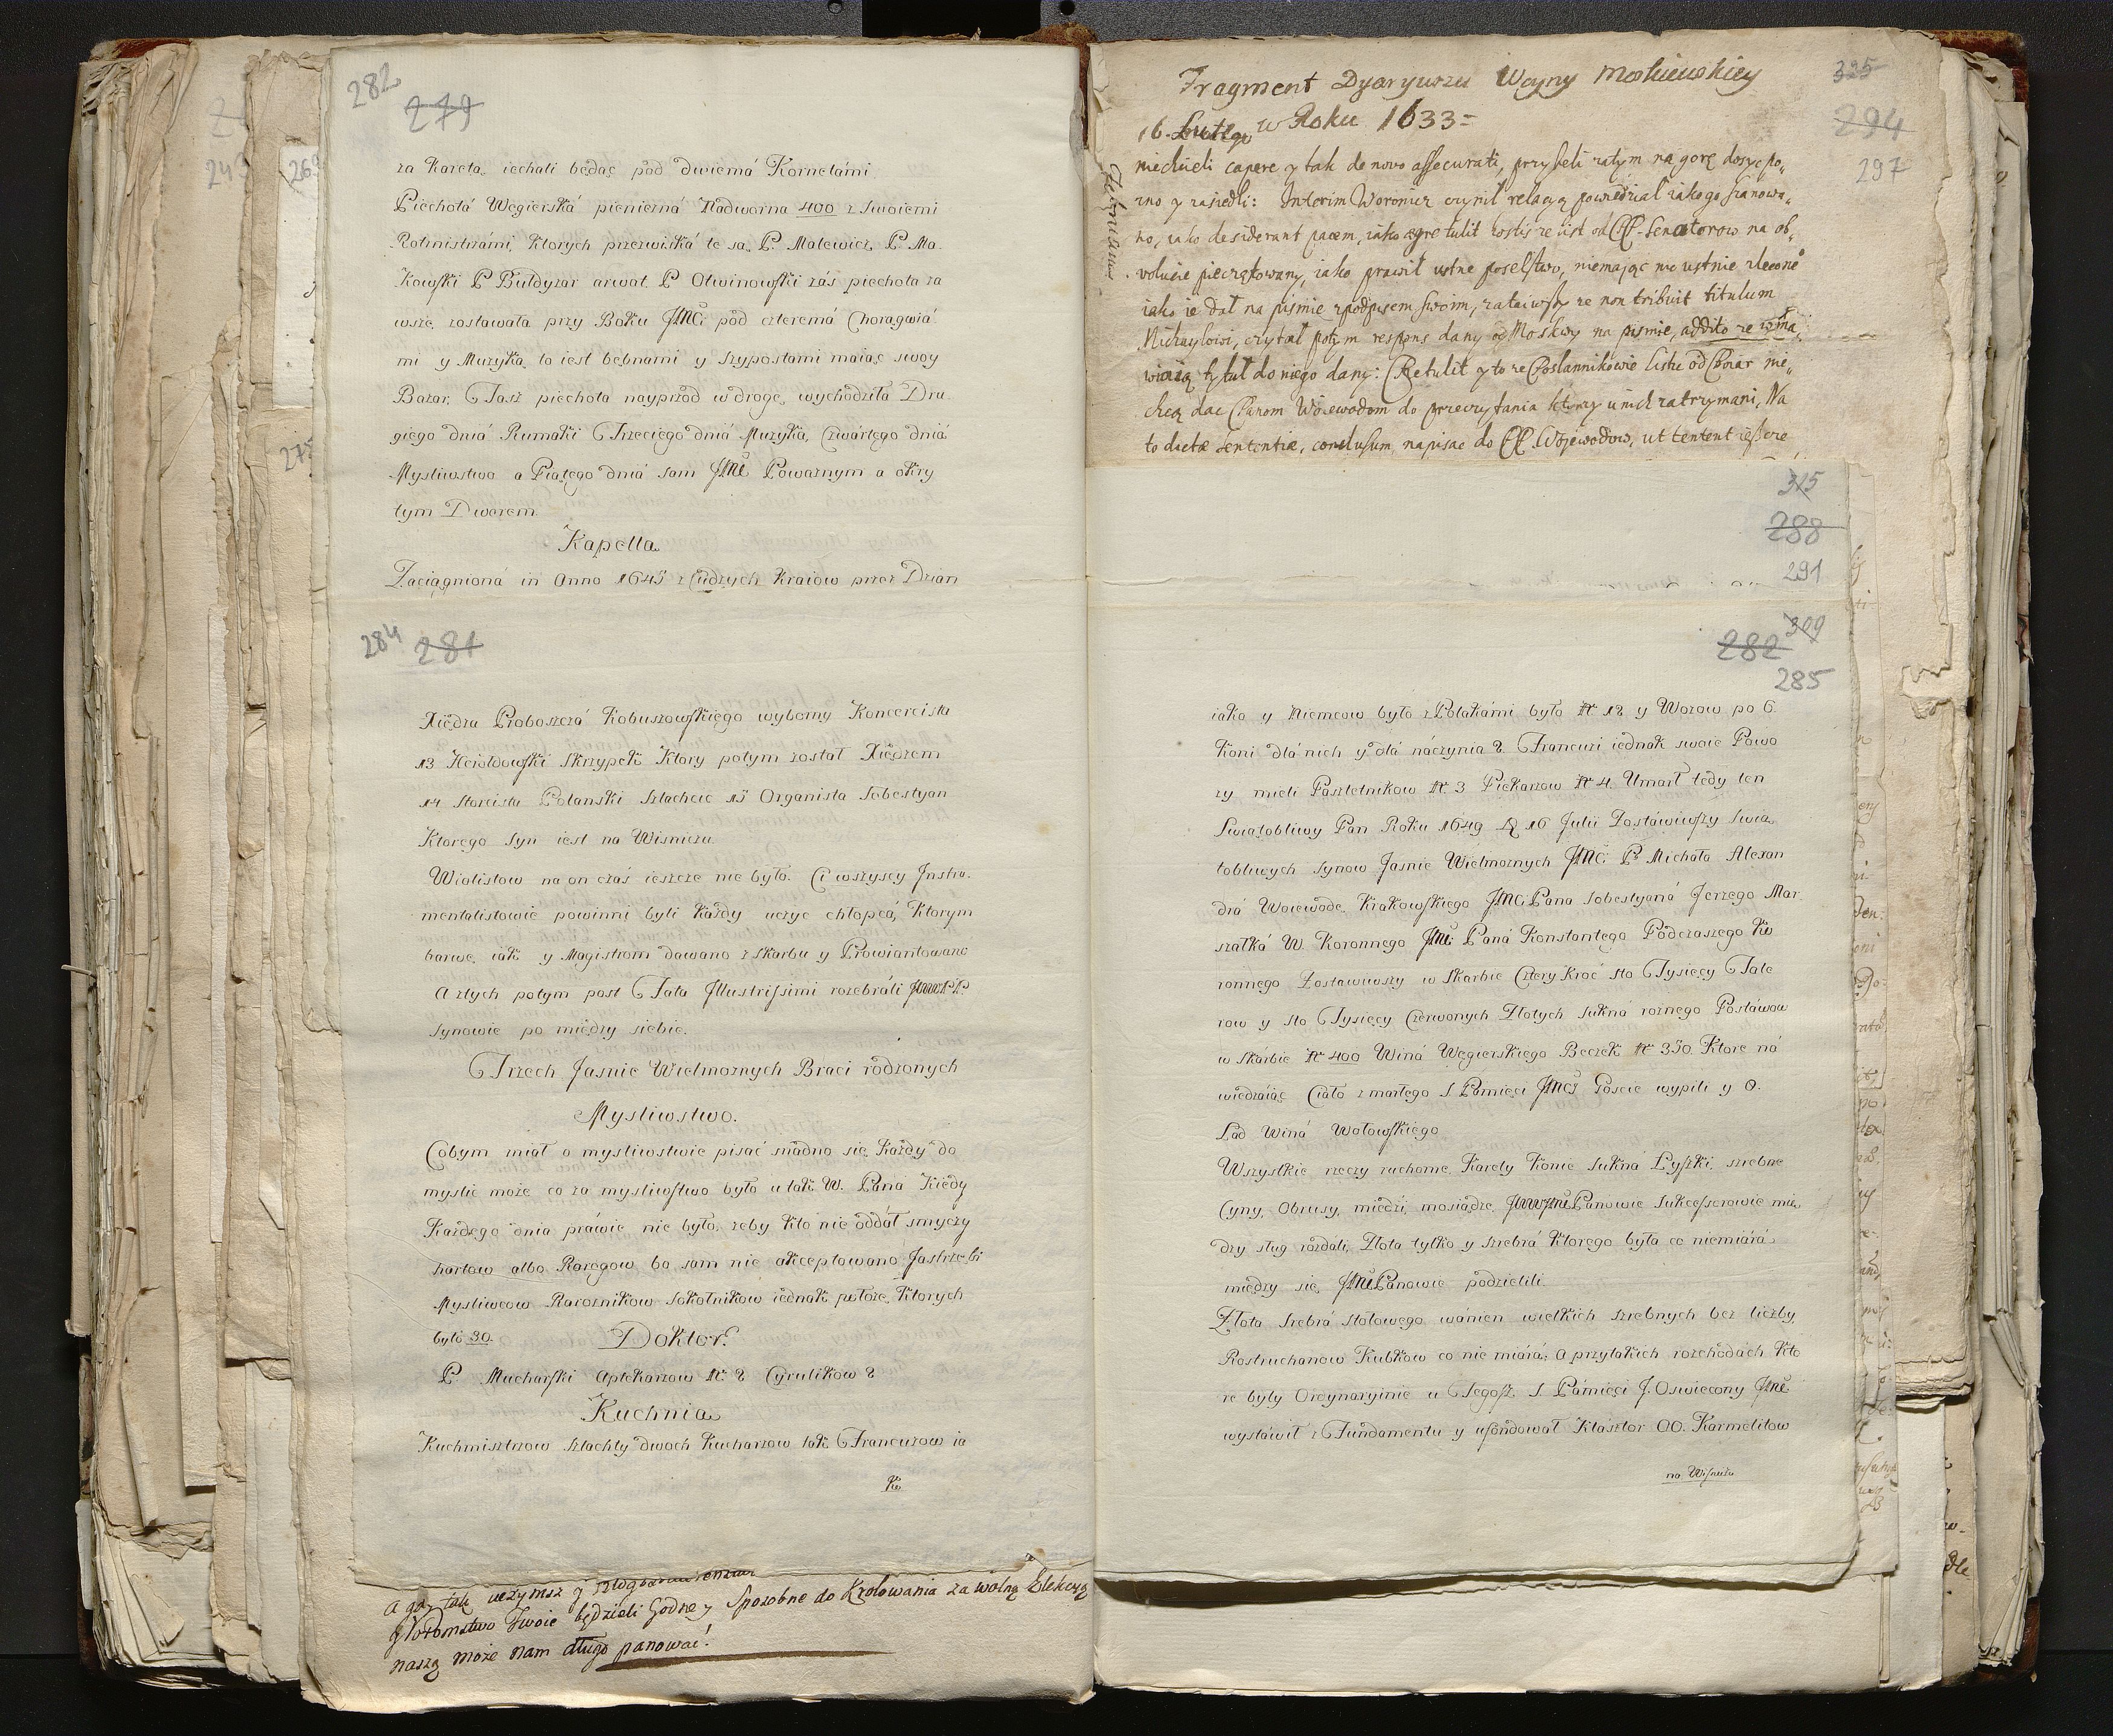 282
279
za Karetą iechali będąc pod dwiemá Kornetámi
Piechotá Węgierská pieniezná Nadworna 400 z Swoiemi
Rotmistrzámi, Ktorych przezwiská te są P. Malewicz, P. Ma-
Kowski P Buldyzar arwat. P Otwinowski zás piechota za
wsze zostawata przy Boku JMCi pod czteremá Chorągwiá
mi y Muzyką to iest bębnami y szyposzami maiąc swoy
Bazar. Taż piechota nayprzod w drogę wychodziła Dru
giego dniá Rumaki Trzeciego dniá Muzyka, Czwártego dniá
Mysliwstwo a Piątego dniá sam JMC Powaznym a okry
tym Dworem.
Kapella
Zaciągnioná in Anno 1645 z Cudzych Kraiow przez Dzian
284
281
Xiędza Proboszczá Kobuszowskiego wyborny Koncercista
13 Heroldowski Skrzypek Ktory potym został Xiędzem
14 Storcista Polanski Szlachcic 15 Organista Sebestyan
Ktorego Syn iest na Wisniczu
Wiolistow na on czás ieszcze nie było. Ci wszyscy Instru-
mentalistowie powinni byli Każdy uczyc chłopcá, Ktorym
barwę iak y Magistrom dawano z Skarbu y Prowiantowano
A ztych potym post Fata Illustrissimi rozebráli
Synowie po między siebie.
Trzech Jasnie Wielmoznych Braci rodzonych
Mysliwstwo.
Cobym miał o mysliwstwie pisać snadno się Każdy do
myslic może co za mysliwstwo było u tak W. Pana Kiedy
Każdego dnia práwie nie było, zeby Kto nie oddał smyczy
hartow albo Rarogow bo sam nie akceptowano Jastrzębi
Mysliwcow Rarozników Sokolnikow iednak położę Ktorych
było 30.
Doktor.
P. Mucharski Aptekarzow N. 2 Cyrulikow 2
Kuchnia
Kuchmistrzow Szlachty dwoch Kucharzow tak Francuzow ia
Ko
a gdy tak uczynisz y
Potomstwo Twoie będzieli Godne y Sposobne do Krolowania za wolną Elekcyą
naszą może nam długo panować!
Fragment Dyaryuszu Woyny Moskiewskiey
w Roku 1633 =
16. Lutego
325
294
297
niechcieli capere y tak de novo assecurati, przyszli zatym na gorę dosyc po„
zno y zasiedli: Interim Woronicz czynił relacyą powiedział iako go szanowa„
no, iako desiderant pacem, iako ægre tulit hostis ze list od PP. Senatorow na ob„
volucie pieczętowany, iako prawił ustne poselstwo, niemaiąc nic ustnie zlecone
iako ie dał na pismie z podpisem swoim, zataiwszy ze non tribuit titulum
Michayłowi, czytał potym respons dany od Moskwy na pismie, addito ze
tytuł do niego dany: Retulit y to ze Posłannikowie listu od Boiar nie„
chcą dac Panom Woiewodom do przeczytania ktorzy u nich zatrzymani, Na
to dictæ Sententiæ, conclusum napisac do PP. Woiewodow, ut tentent ieszcze
315
288
291
309
282
285
iako y Niemcow było z Polakámi było N 12 y Wozow po 6
Koni dlá nich y dlá náczynia 2 Francuzi iednak swoie Powo
zy mieli Pasztetnikow N. 3 Piekarzow N 4. Umarł tedy ten
Swiątobliwy Pan Roku 1649 D 16 Julii Zostáwiwszy Swią
tobliwych Synow Jasnie Wielmoznych JMC P. Michała Alexan
drá Woiewodę Krakowskiego JMC Pana Sobestyaná Jerzego Mar
szałká W. Koronnego JMC Paná Konstantego Podczaszego Ko
ronnego Zostawiwszy w Skarbie Cztery Kroć sto Tysięcy Tale
row y sto Tysięcy Czerwonych Złotych Sukná roznego Postáwow
w Skárbie N 400 Winá Węgierskiego Beczek N 350. Ktore ná
wiedzáiąc Ciało zmarłego S. Pamięci JMCi Goscie wypili y O.
Lad Winá Wołowskiego
Wszystkie rzeczy ruchome, Karety Konie Sukná Łyszki srebne
Cyny, Obrusy, miedzi, mosiądze, Panowie Sukcessorowie mię
dzy sług rozdali, Złota tylko y Srebrá Ktorego była co niemiárá
między się JMC Panowie podzielili
Złota Srebrá stołowego wánien wielkich srebnych bez liczby,
Rostruchanow Kubkow co nie miárá; a przytakich rozchodách Kto
re były Ordynaryinie u Tegosz S. Pámięci J. Oswiecony JMC
wystáwił z Fundamentu y ufundował Klasztor OO. Karmelitow
na Wisniczu